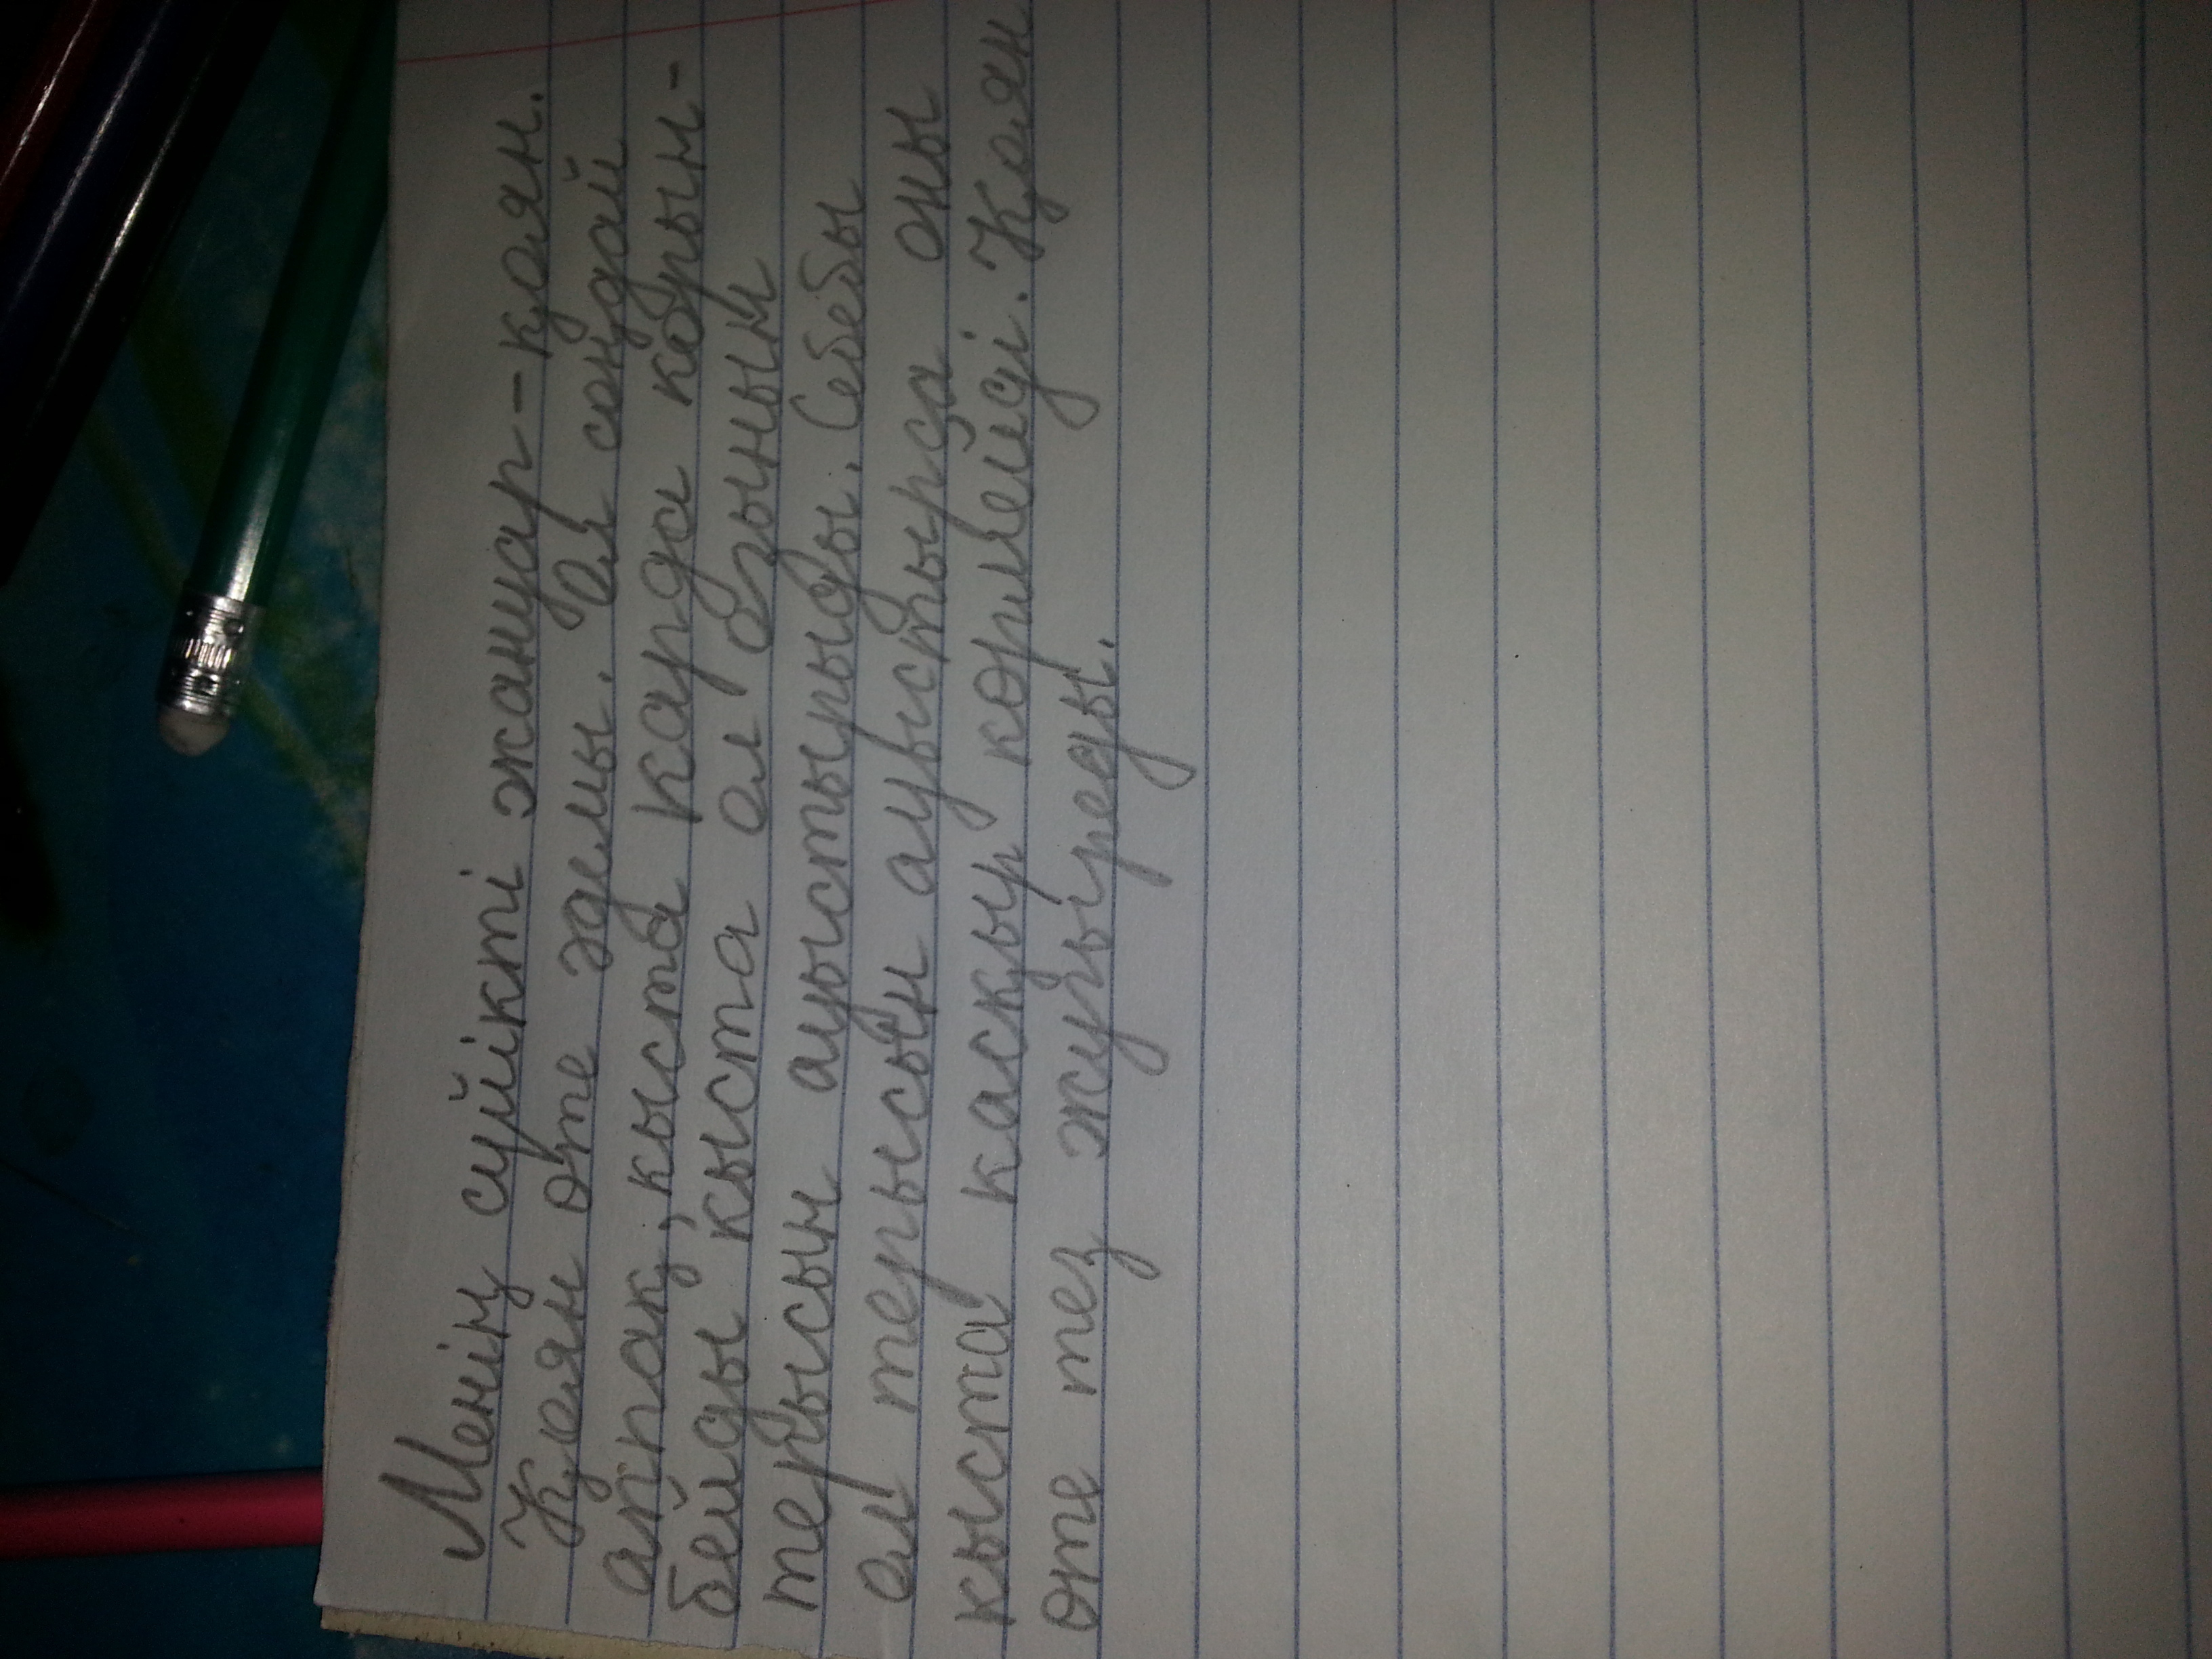 Менің сүйікті жануар-қоян.
Қоян өте әдемы. Ол сондай
аппақ, кыста карда көрін-
бейды кыста ол өзынын
терысын ауыстырыды. Себебы
ол терысын ауыстырса оны
кыста каскыр көрлейді. Қоян
өте тез жүгыреды.